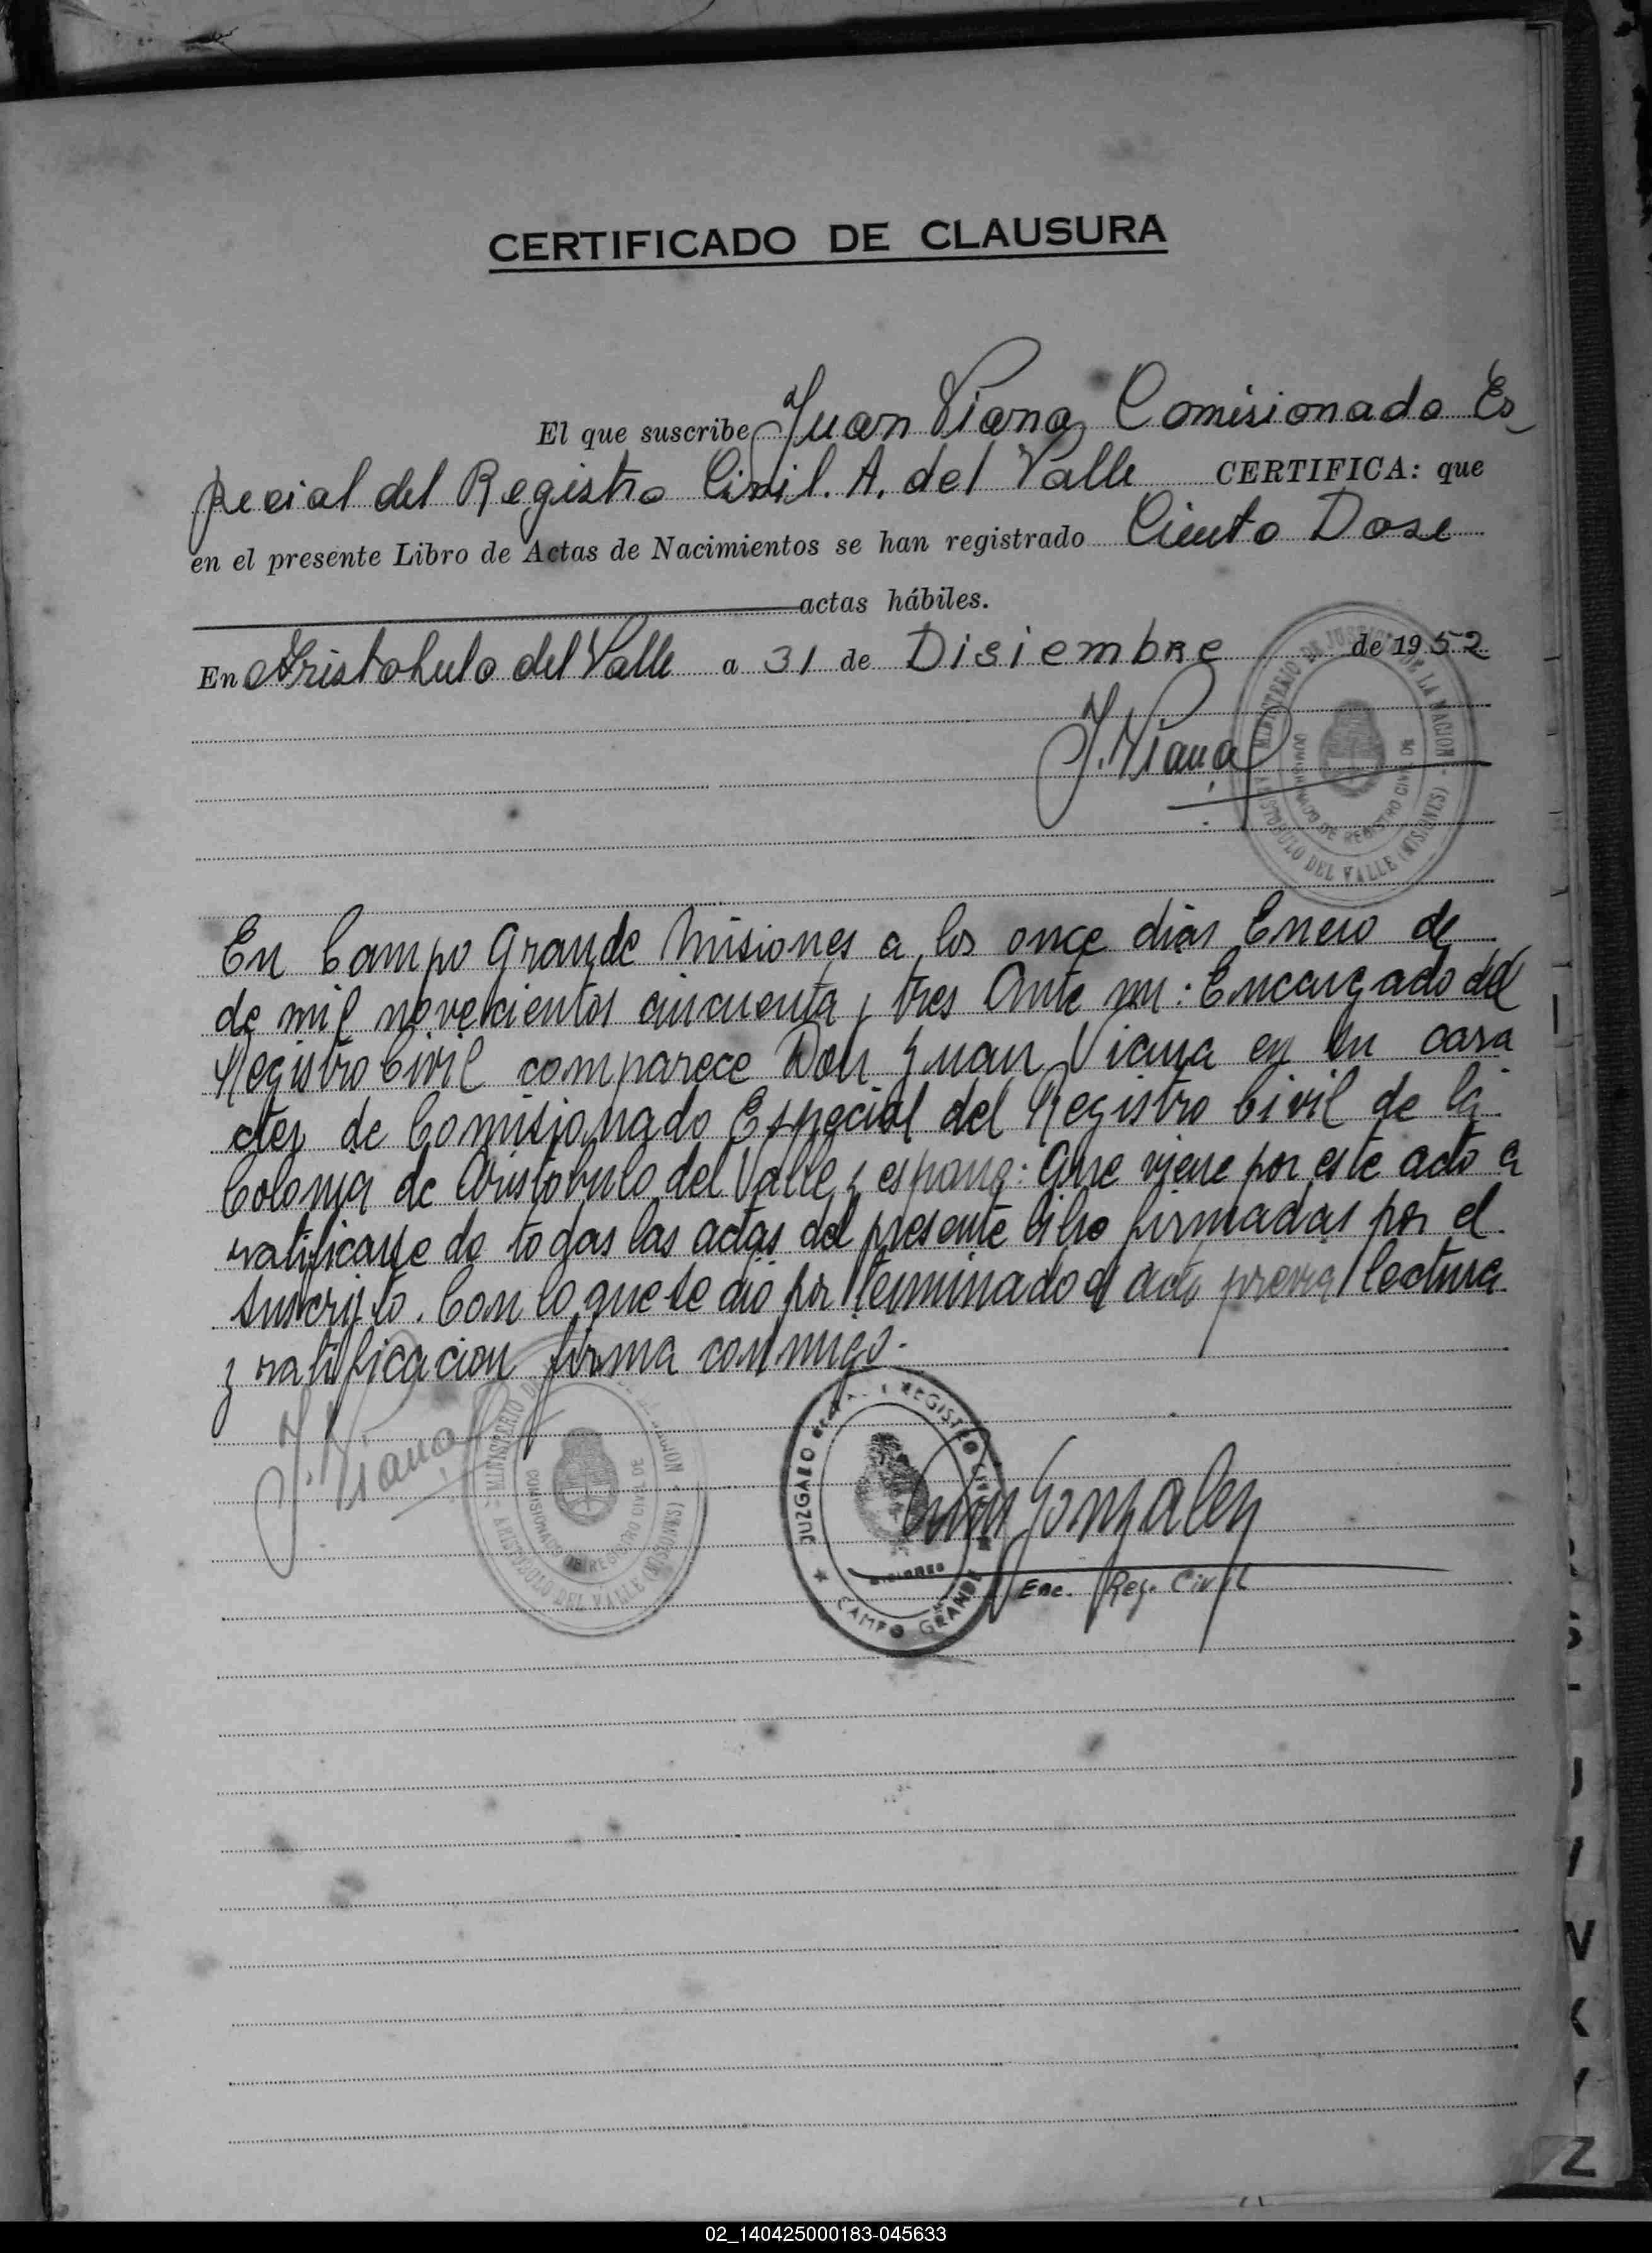 CERTIFICADO DE CLAUSURA
El que suscribe Juan Viana Comisionado Es_
pecial del Registro Civil. A. del Valle CERTIFICA: que
en el presente Libro de Actas de Nacimientos se han registrado Ciento Dose
actas hábiles.
En Aristobulo del Valle a 31 de Disiembre de 1952
J. Viana
MINISTERIO DE JUSTICIA DE LA NACION
REGISTRO CIVIL DE
ARISTOBULO DEL VALLE (MISIONES)
En Campo Grande Misiones a los once dias Enero de
de mil novecientos cincuenta y tres Ante mi: Encargado del
Registro Civil comparece Don Juan Viana en su cara
cter de Comisionado Especial del Registro Civil de la
Colonia de Aristobulo del Valle y espone: Que viene por este acto a
ratificarse de todas las actas del presente libro firmadas por el
suscripto. Con lo que se dió por terminado el acto previa lectura
y ratificacion firma conmigo.-
J. Viana
MINISTERIO
COMISIONADO DE REGISTRO CIVIL DE
ARISTOBULO DEL VALLE (MISIONES)
JUZGADO REGISTRO CIVIL
MISIONES
CAMPO GRANDE
Gonzalez
Enc. Reg. Civil
J
I
V
K
Y
Z
02_140425000183-045633